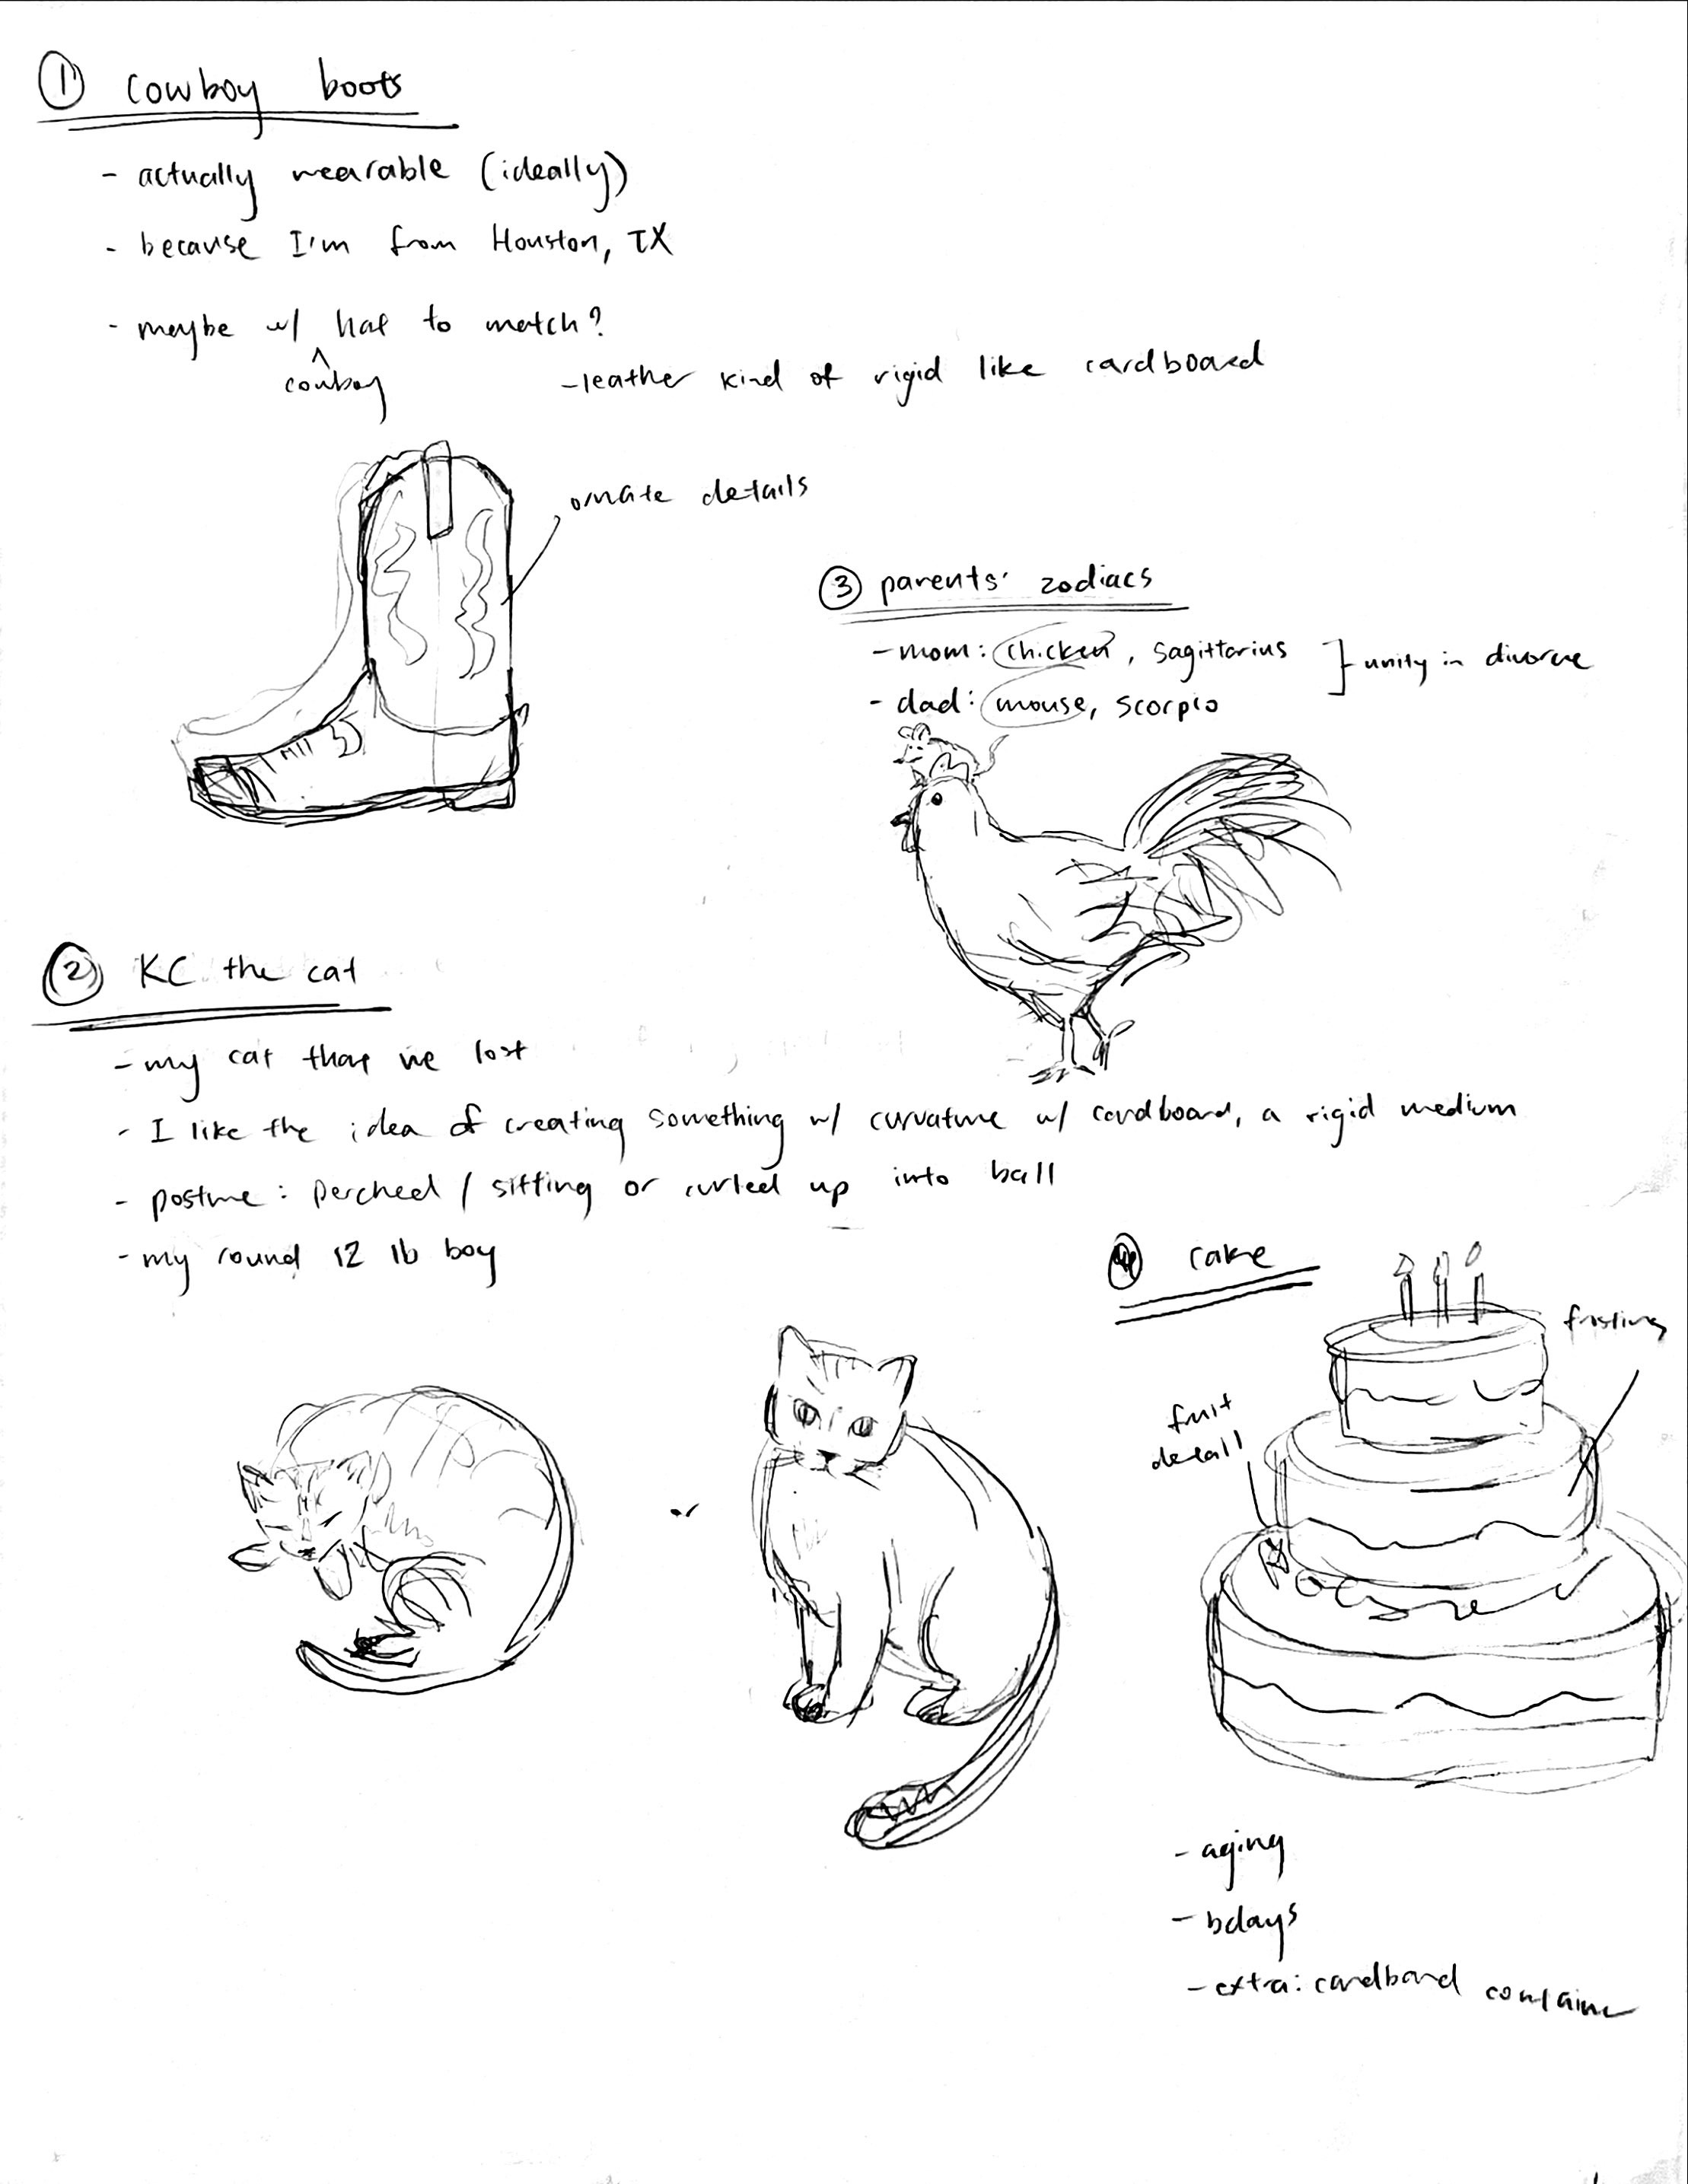 ① cowboy boots
- actually wearable (ideally)
- because I'm from Houston, TX
- maybe w/ hat to match?
^
cowboy
- leather kind of rigid like cardboard
ornate details
③ parents' zodiacs
- mom: chicken, sagittarius
- dad: mouse, scorpio
} unity in divorce
② KC the cat
- my cat that we lost
- I like the idea of creating something w/ curvature w/ cardboard, a rigid medium
- posture: perched / sitting or curled up into ball
- my round 12 lb boy
or
④ cake
frosting
fruit
detail
- aging
- bdays
- extra: cardboard container